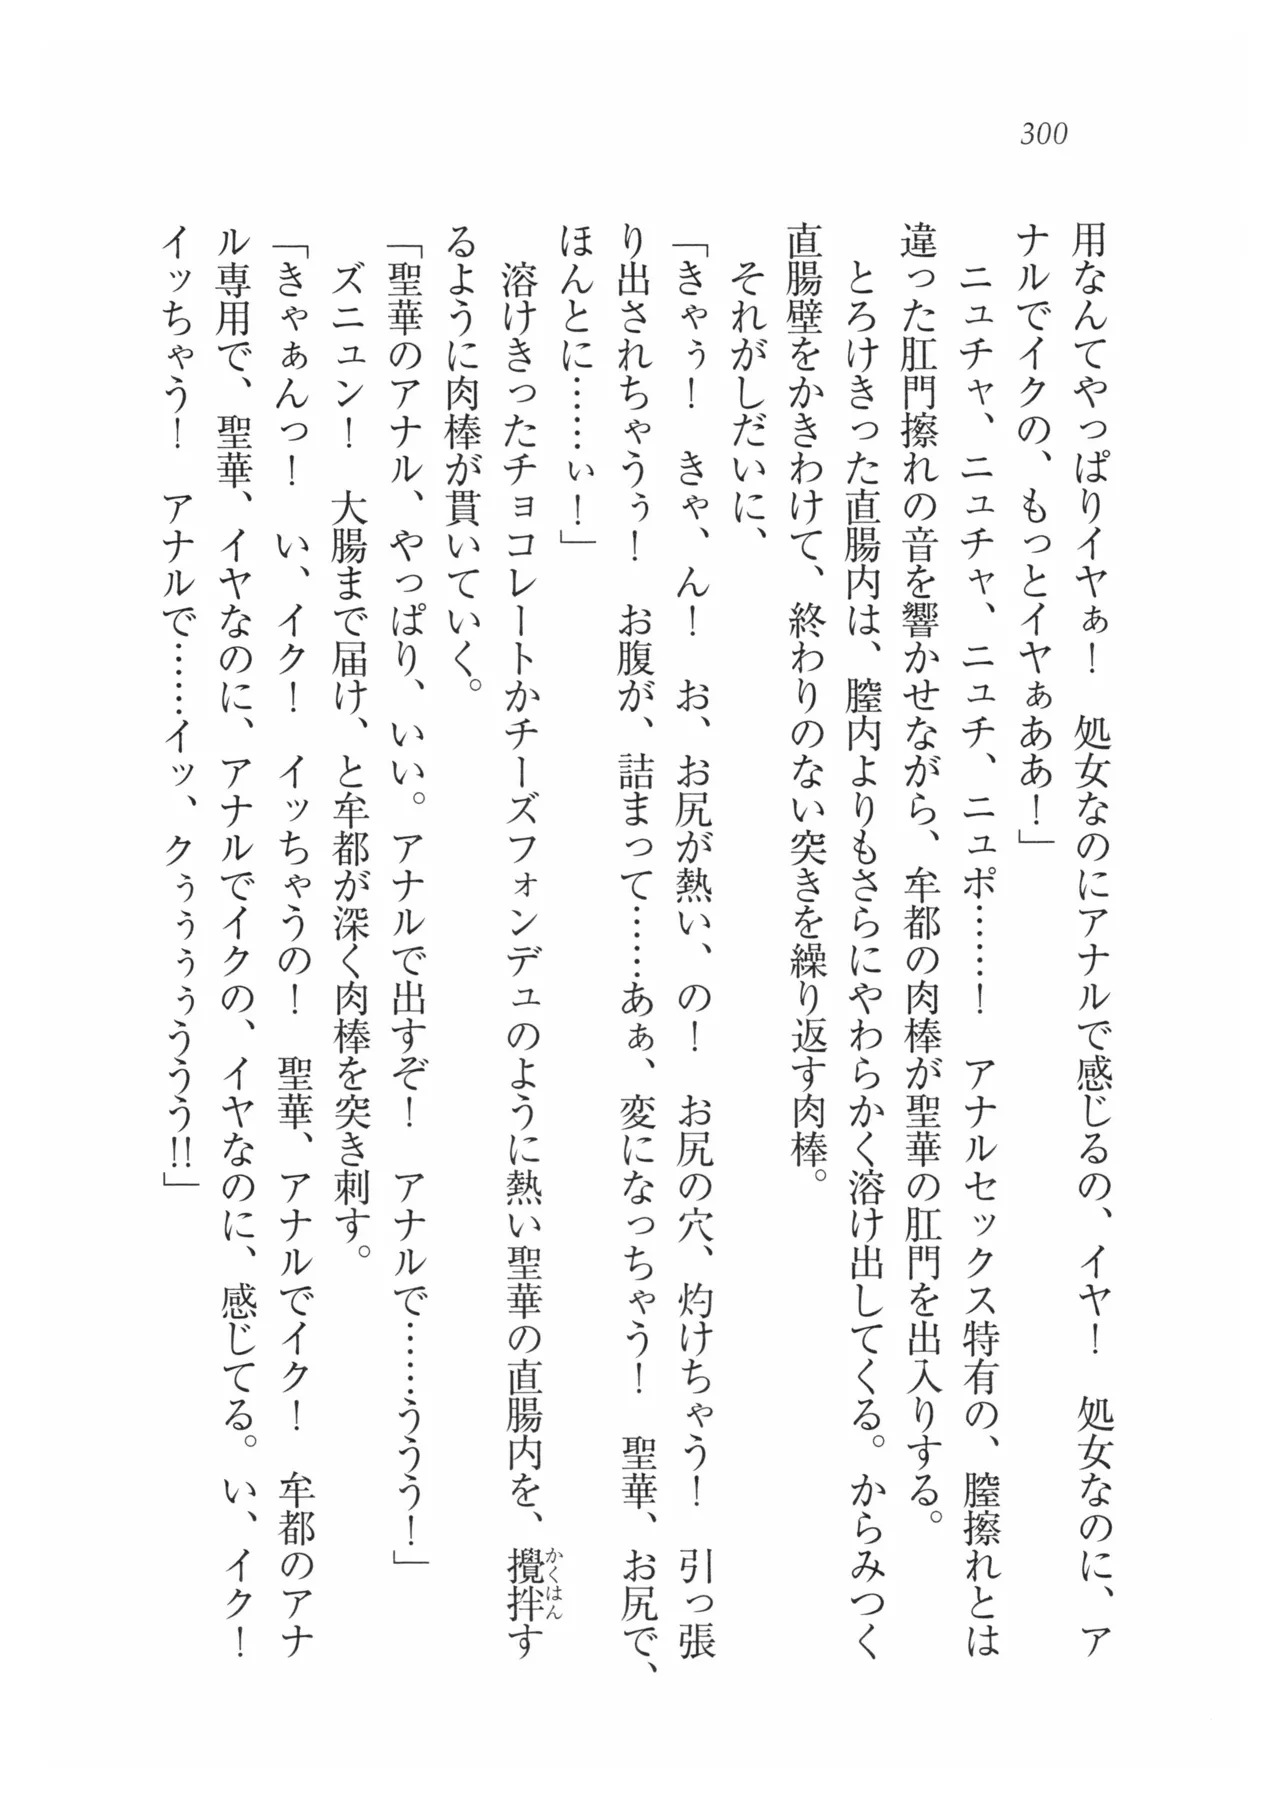 300
用なんてやっぱりイヤぁ！　処女なのにアナルで感じるの、イヤ！　処女なのに、ア
ナルでイクの、もっとイヤぁああ！」
　ニュチャ、ニュチャ、ニュチ、ニュポ……！　アナルセックス特有の、膣擦れとは
違った肛門擦れの音を響かせながら、牟都の肉棒が聖華の肛門を出入りする。
　とろけきった直腸内は、膣内よりもさらにやわらかく溶け出してくる。からみつく
直腸壁をかきわけて、終わりのない突きを繰り返す肉棒。
　それがしだいに、
「きゃぅ！　きゃ、ん！　お、お尻が熱い、の！　お尻の穴、灼けちゃう！　引っ張
り出されちゃうぅ！　お腹が、詰まって……あぁ、変になっちゃう！　聖華、お尻で、
ほんとに……ぃ！」
　溶けきったチョコレートかチーズフォンデュのように熱い聖華の直腸内を、攪拌す
かくはん
るように肉棒が貫いていく。
「聖華のアナル、やっぱり、いい。アナルで出すぞ！　アナルで……ううう！」
　ズニュン！　大腸まで届け、と牟都が深く肉棒を突き刺す。
「きゃぁんっ！　い、イク！　イッちゃうの！　聖華、アナルでイク！　牟都のアナ
ル専用で、聖華、イヤなのに、アナルでイクの、イヤなのに、感じてる。い、イク！
イッちゃう！　アナルで……イッ、クぅぅぅぅううう!!」